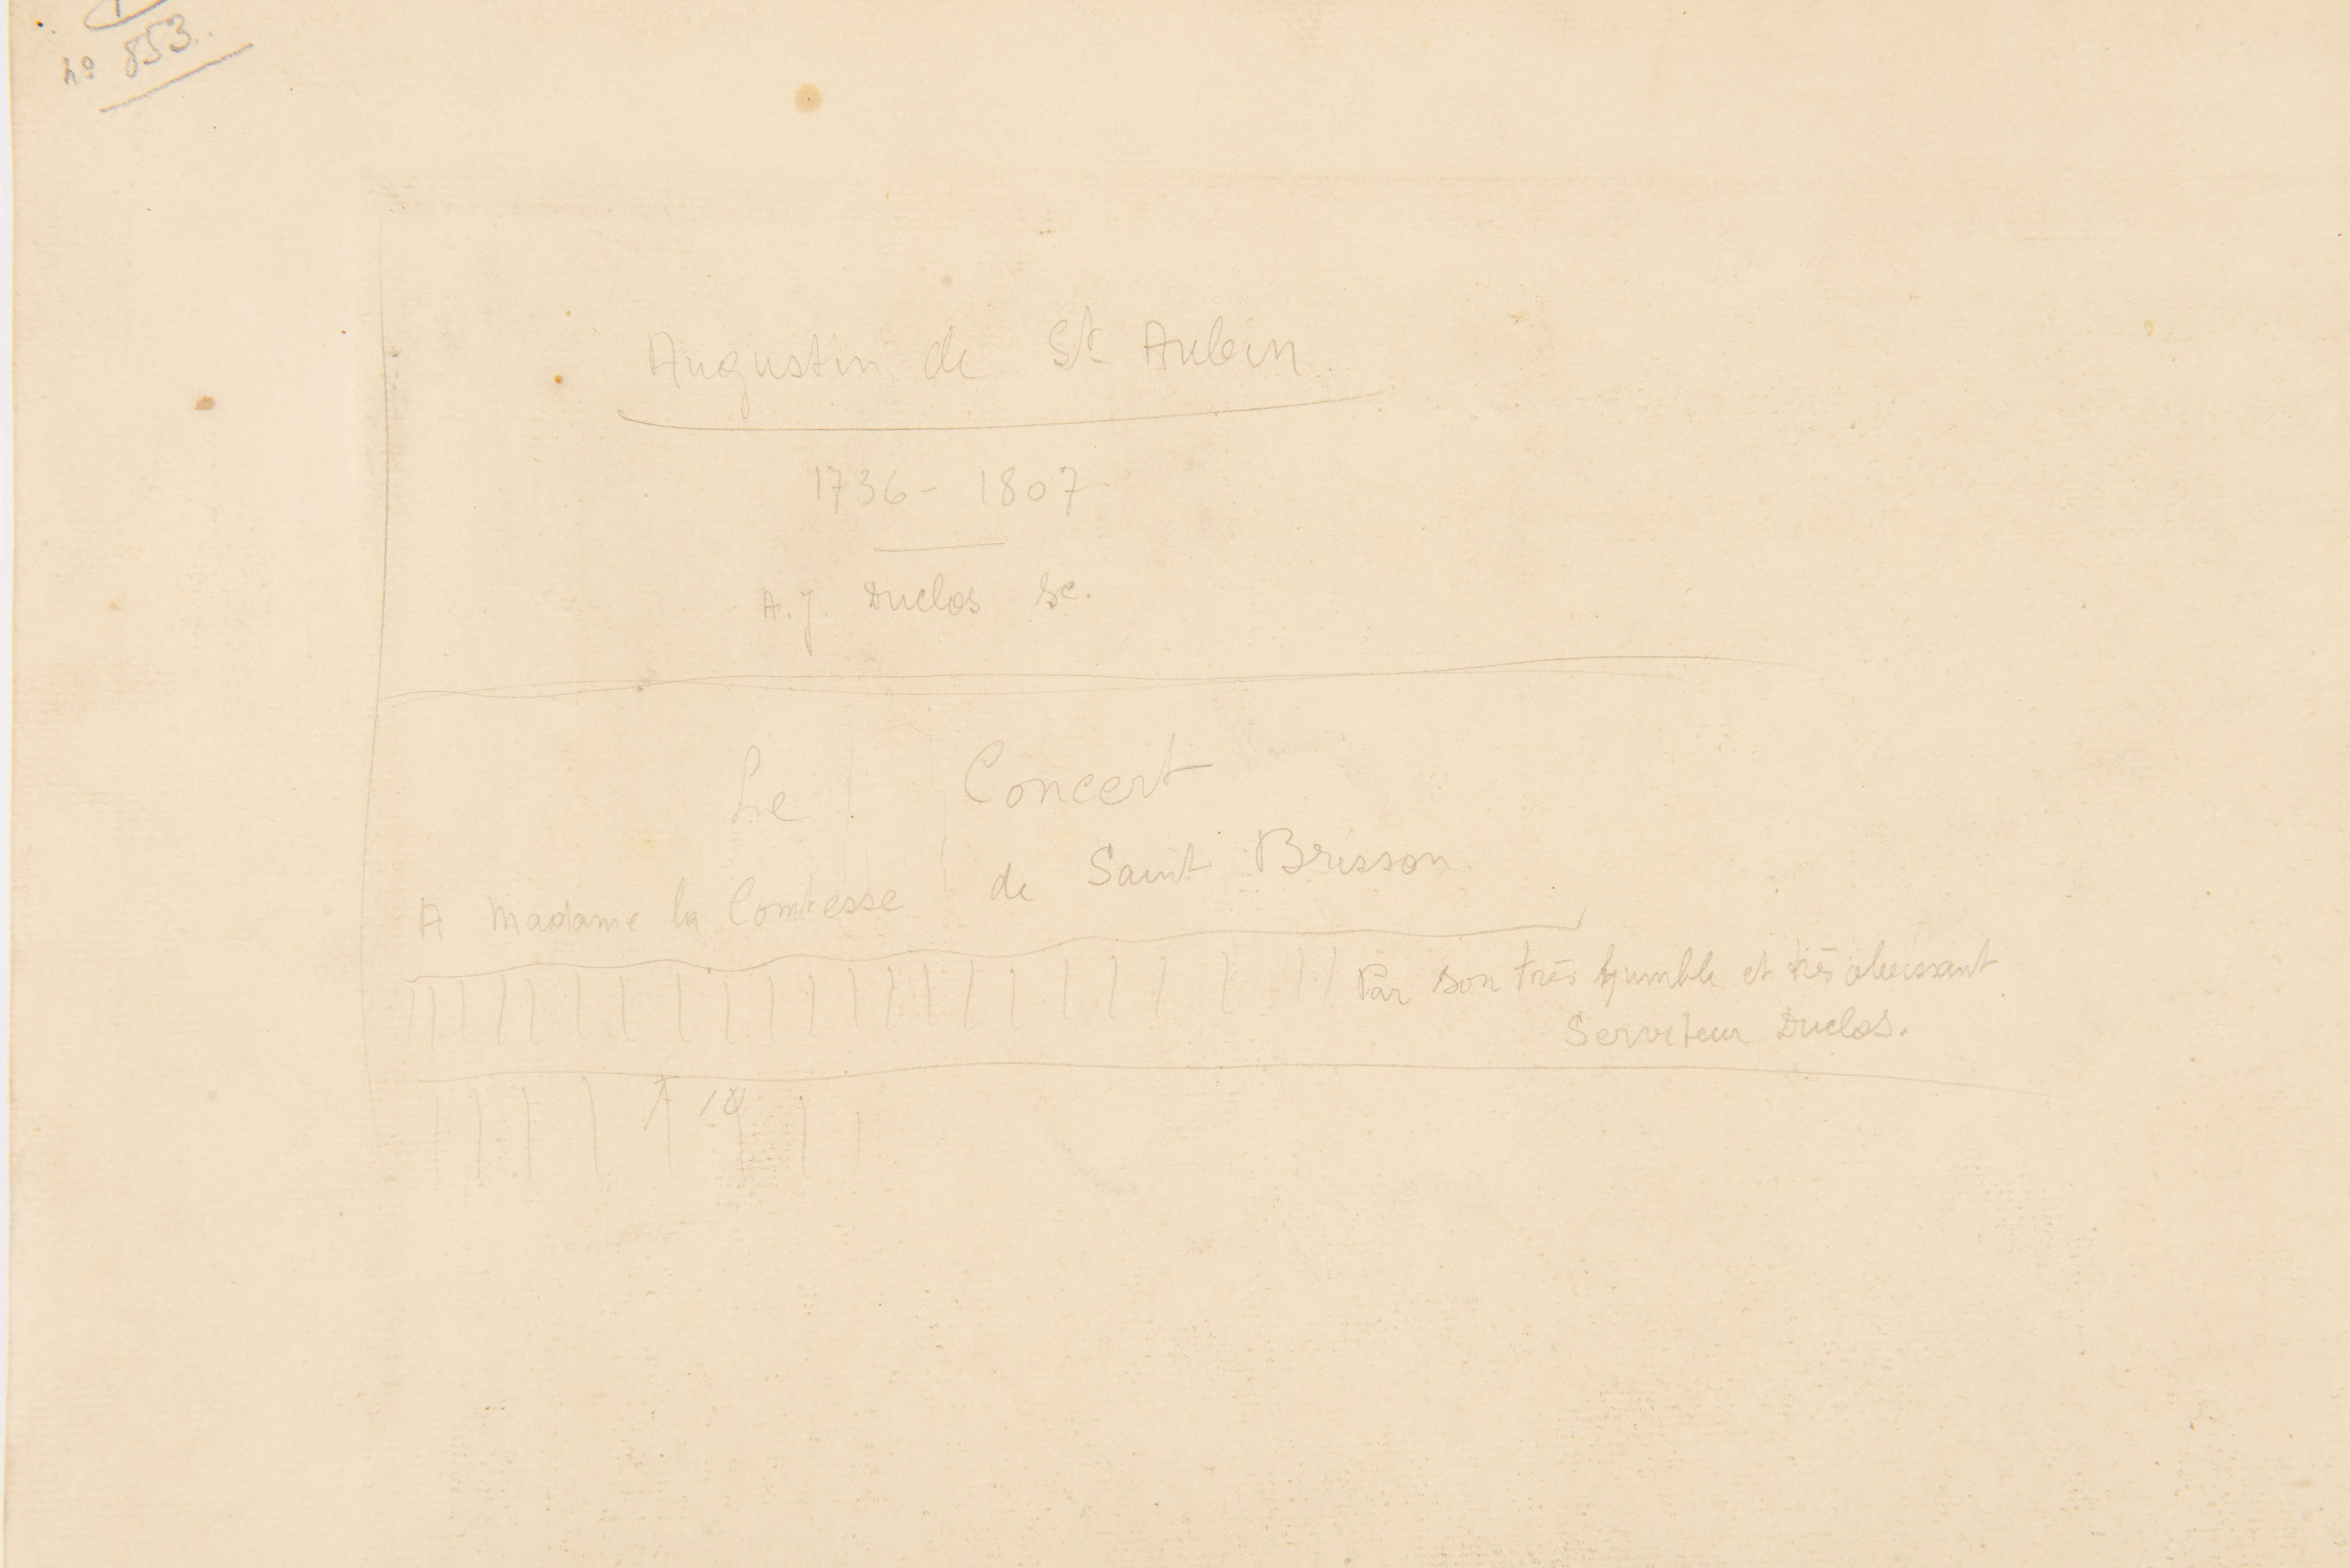 nº 853.
Augustin de St Aubin.
1736 - 1807
A. J. Duclos Sc.
Le Concert
A Madame la Comtesse de Saint Brisson
Par son très humble et très obeissant
Serviteur Duclos.